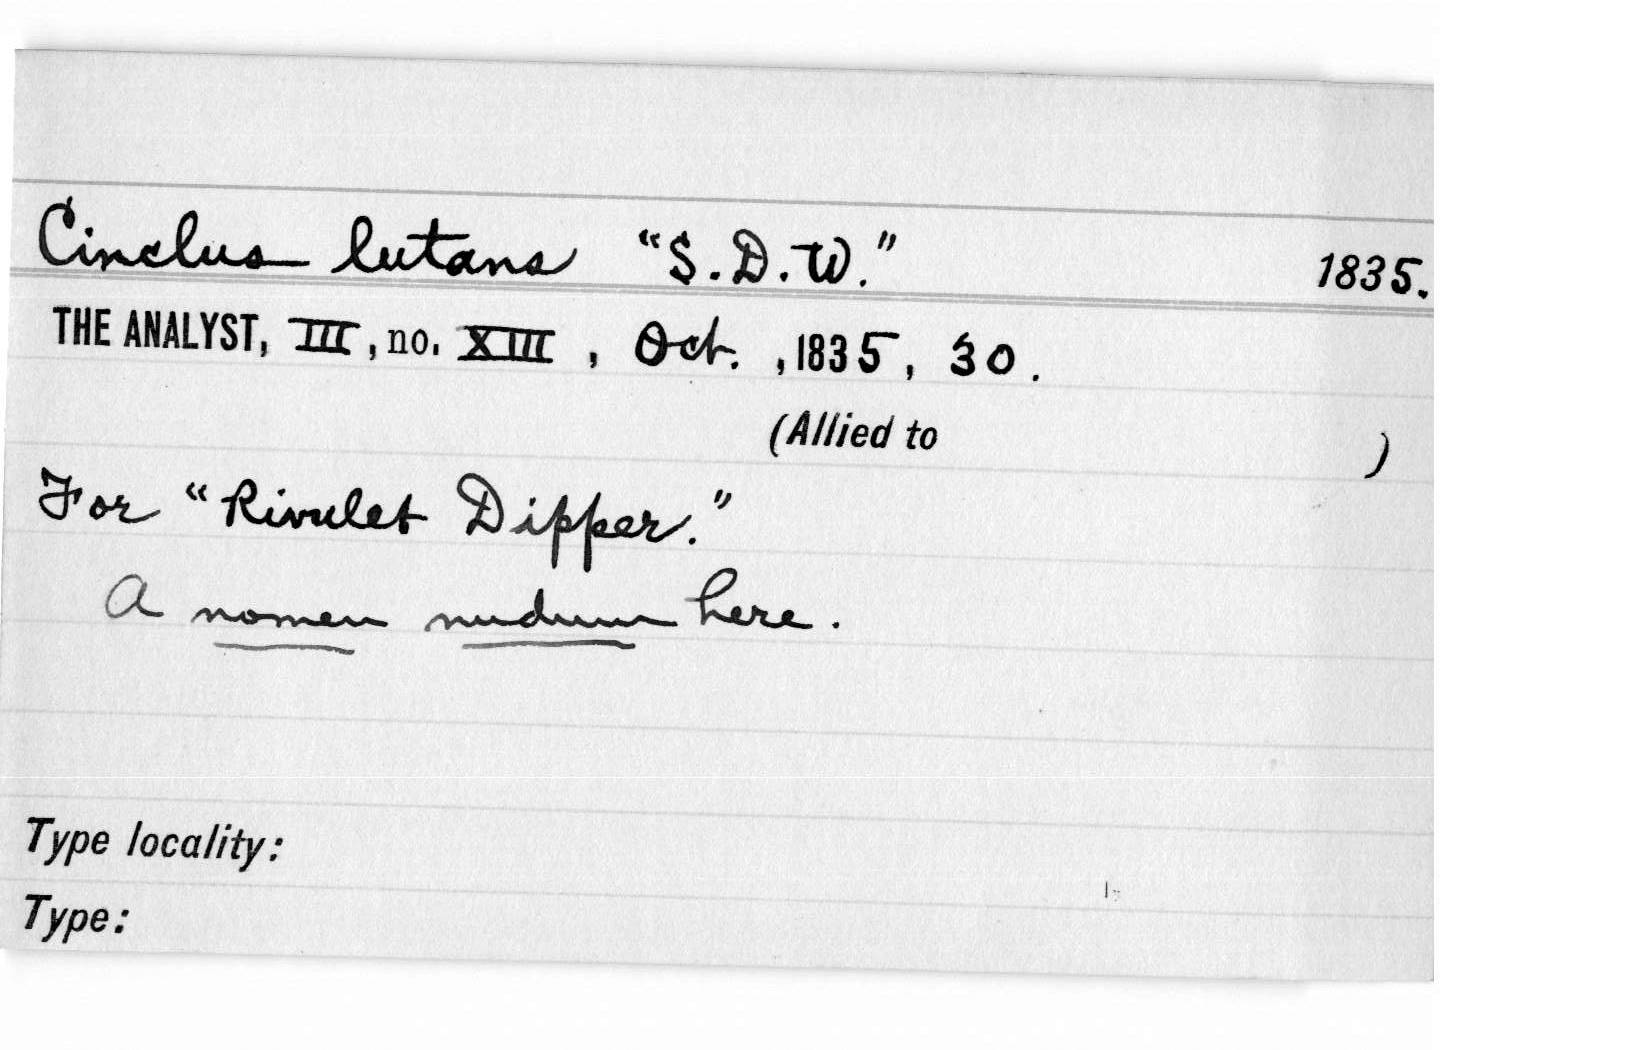 Cinclus lutans "S.D.W." 1835.
THE ANALYST, III, no. XIII, Oct., 1835, 30.
(Allied to )
For "Rivulet Dipper."
A nomen nudum here.
Type locality:
Type: